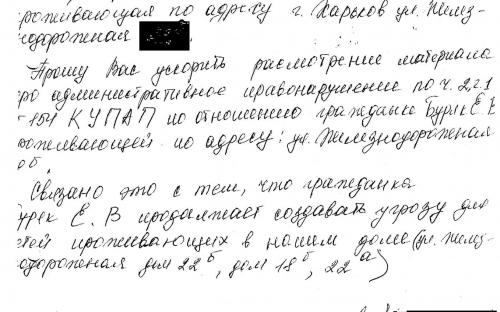 роживающая по адресу г. Харьков ул. Желез-
нодорожная
Прошу Вас ускорить рассмотрение материала
про административное правонарушение по ч. 2 ст
154 КУПАП по отношению гражданки Буряк Е. В
роживающей по адресу: ул. Железнодорожная
Связано это с тем, что гражданка
Буряк Е. В продолжает создавать угрозу для
етей проживающих в нашем доме (ул. Желез-
одорожная дом 22б, дом 18б, 22а)